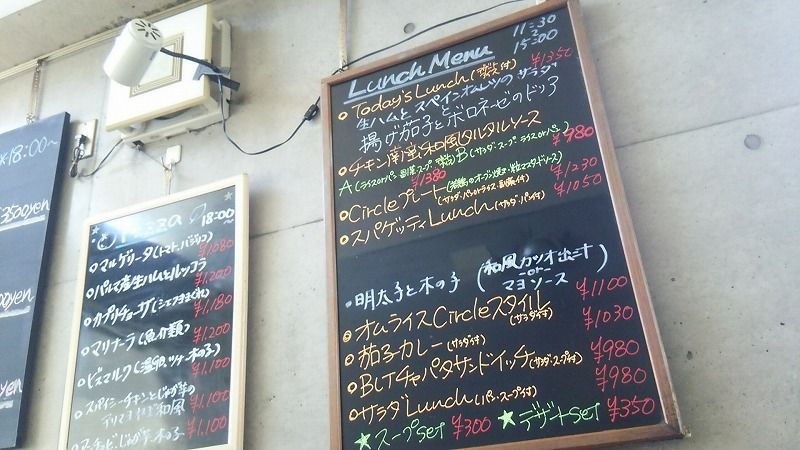 ※18:00~
3500yen
00yen
yen
Pizza 18:00~
マルゲリータ(トマト、バジリコ) ¥1080
パルマ産生ハムとルッコラ ¥1,200
カプリチョーザ(シェフきまぐれ) ¥1,180
マリナーラ(魚介類) ¥1,200
ビスマルク(温卵、ツナ、木の子) ¥1,100
スパイシーチキンとじゃが芋の
和風 ¥1,100
アンチョビ、じゃが芋、木の子 ¥1,100
Lunch Menu 11:30~15:00
Today's Lunch(デザート付) ¥1350
生ハムとスペインオムレツのサラダ
揚げ茄子とボロネーゼのドリア
チキン南蛮 和風タルタルソース
A(ライスorパン 副菜 スープ) ¥1380 B(サラダ・スープ ライスorパン) ¥980
Circleプレート(若鶏のオーブン焼き・粒マスタードソース) ¥1230
(サラダ・パンorライス・副菜付)
スパゲッティLunch(サラダ・パン付) ¥1050
・明太子と木の子(和風カツオ出汁 or マヨソース)
オムライスCircleスタイル(サラダ付) ¥1100
茄子カレー(サラダ付) ¥1030
BLTチャパタサンドイッチ(サラダ・スープ付) ¥980
サラダLunch(パン・スープ付) ¥980
★スープset ¥300 ★デザートset ¥350